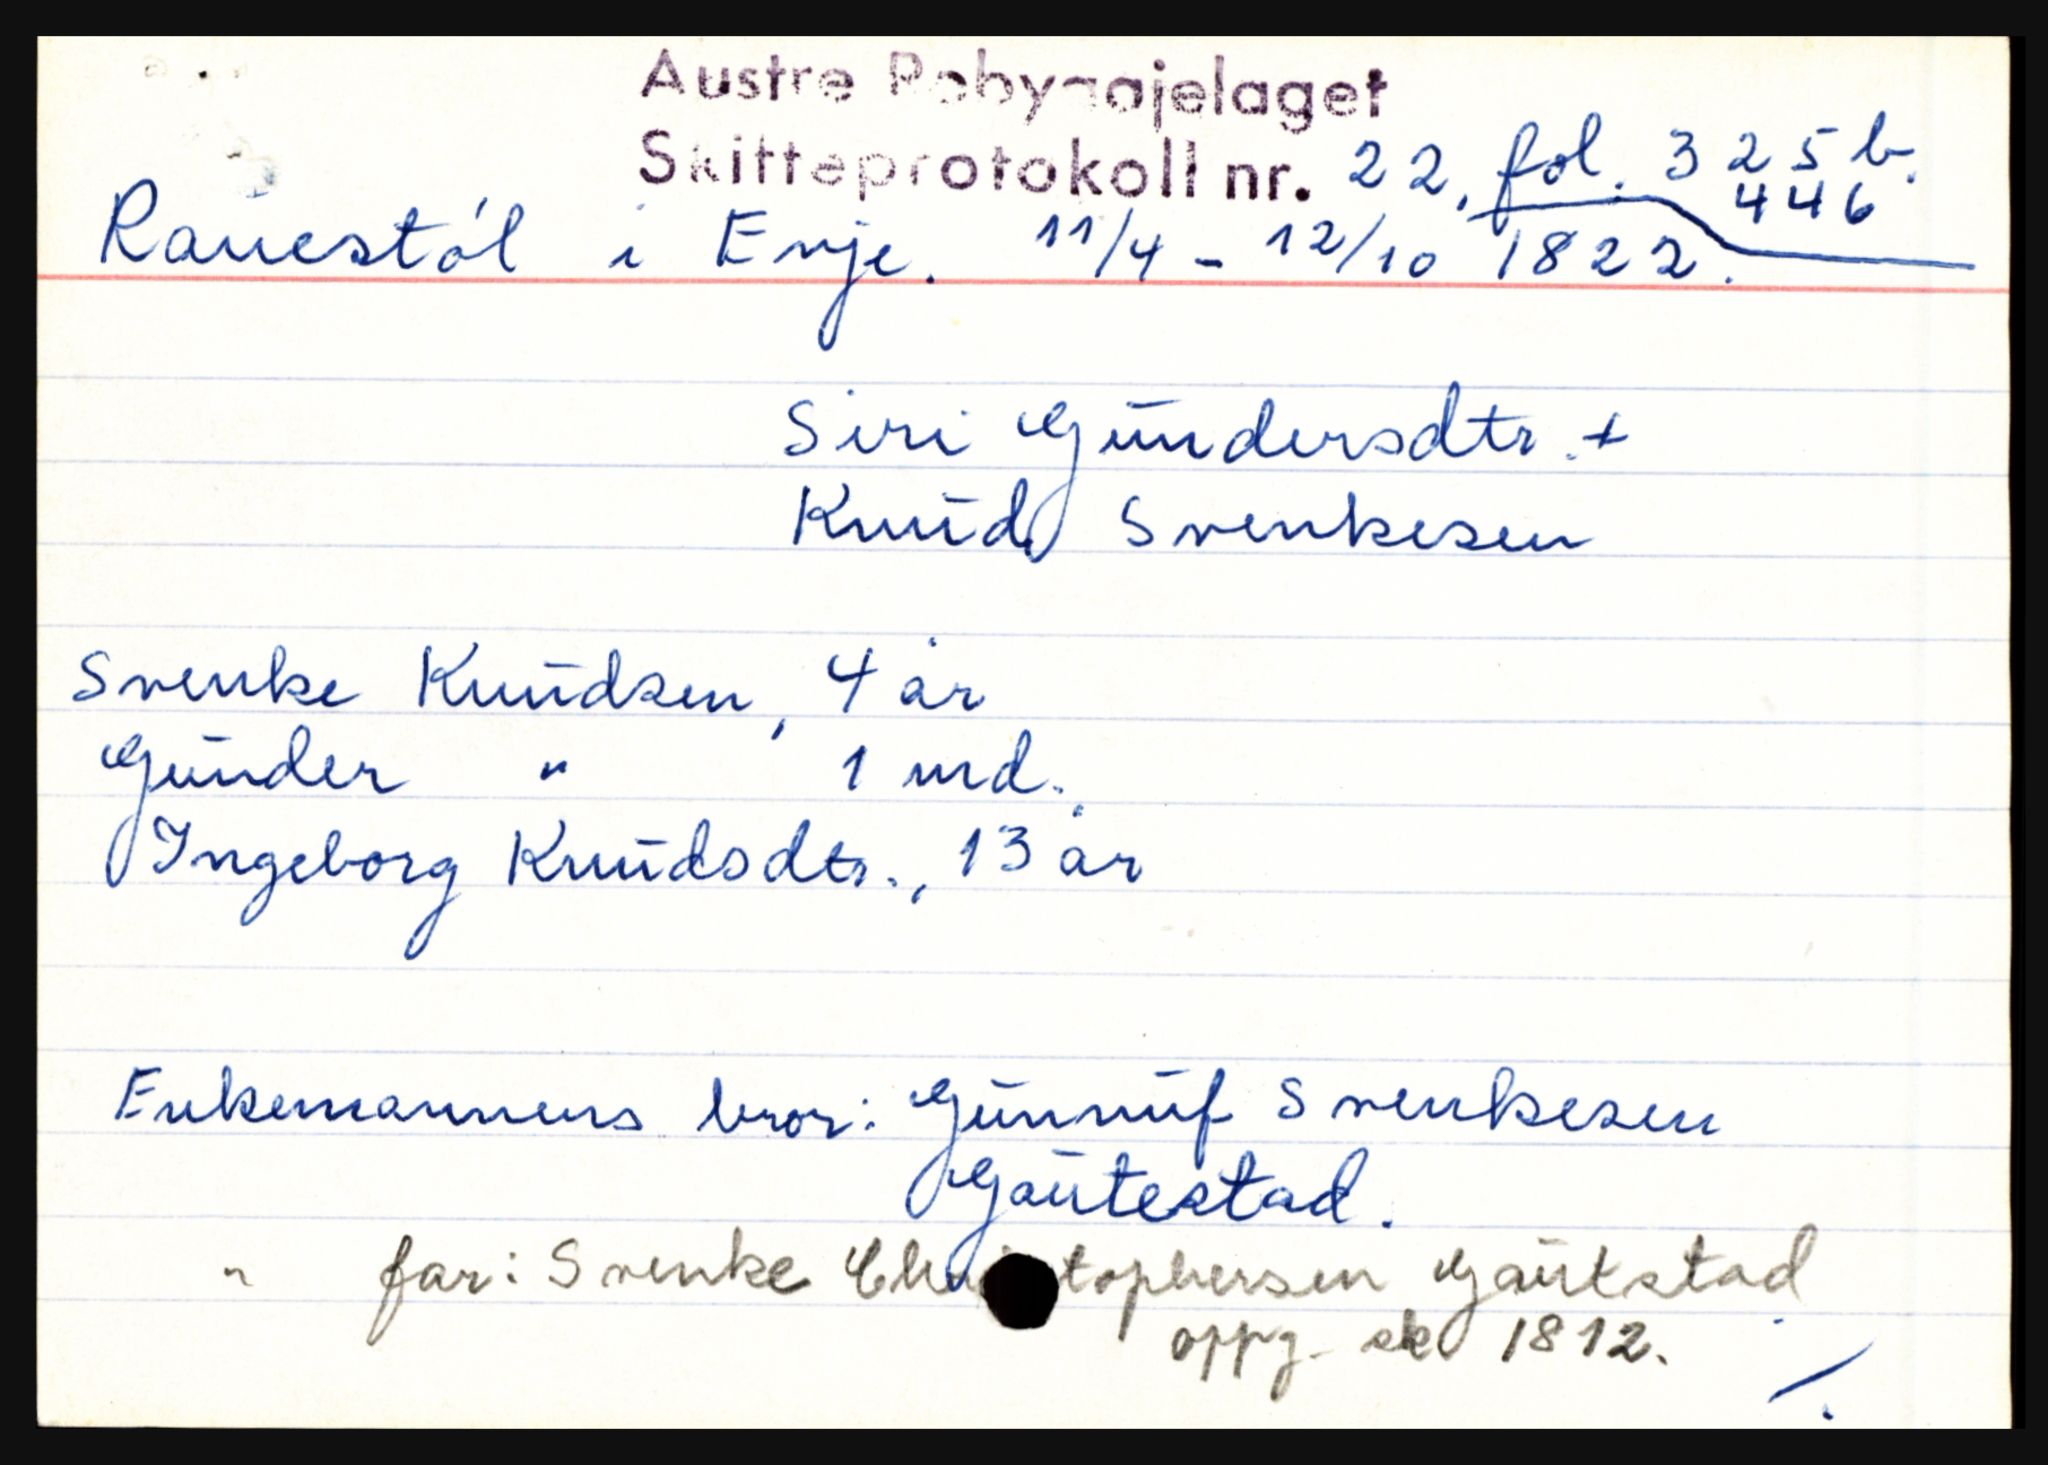 Austre Robyggjelaget
Skifteprotokoll nr. 22, fol. 325 b.
446
Rauestøl i Evje. 11/4 - 12/10 1822.
Siri Gundersdtr. +
Knud Svenkesen
Svenke Knudsen, 4 år
Gunder " 1 md.
Ingeborg Knudsdtr., 13 år
Enkemannens bror: Gunnuf Svenkesen
Gautestad.
" far: Svenke Christophersen Gautstad
oppg. sk 1812.